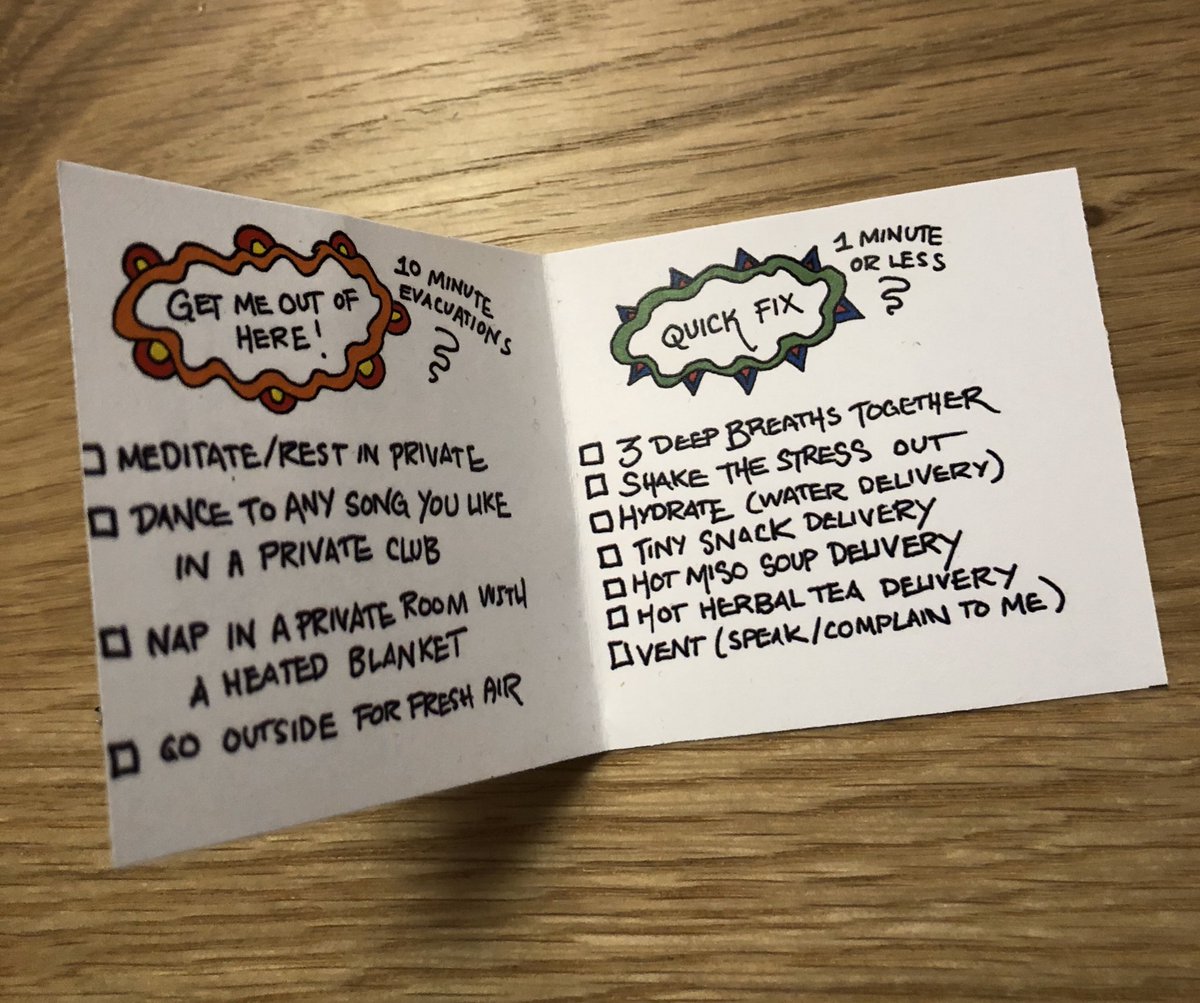 GET ME OUT OF
HERE!
10 MINUTE
EVACUATIONS
☐ MEDITATE/REST IN PRIVATE
☐ DANCE TO ANY SONG YOU LIKE
IN A PRIVATE CLUB
☐ NAP IN A PRIVATE ROOM WITH
A HEATED BLANKET
☐ GO OUTSIDE FOR FRESH AIR
QUICK FIX
1 MINUTE
OR LESS
☐ 3 DEEP BREATHS TOGETHER
☐ SHAKE THE STRESS OUT
☐ HYDRATE (WATER DELIVERY)
☐ TINY SNACK DELIVERY
☐ HOT MISO SOUP DELIVERY
☐ HOT HERBAL TEA DELIVERY
☐ VENT (SPEAK/COMPLAIN TO ME)